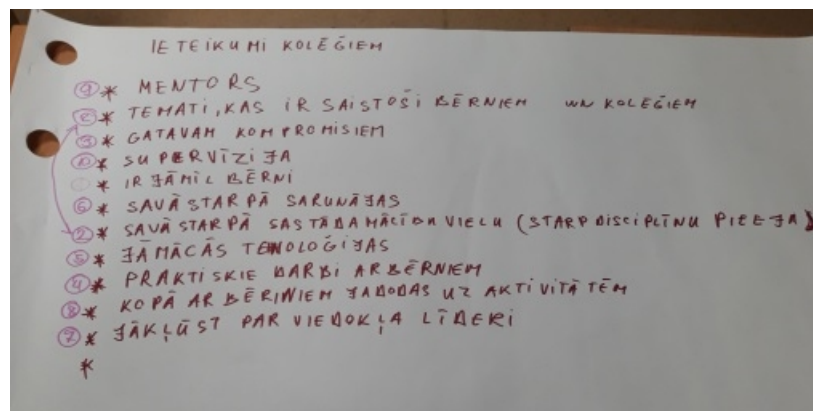 IETEIKUMI KOLĒĢIEM
9 * MENTORS
* TEMATI, KAS IR SAISTOŠI BĒRNIEM UN KOLEĢIEM
3 * GATAVAM KOMPROMISIEM
10 * SUPERVĪZIJA
* IR JĀMĪL BĒRNI
6 * SAVĀ STARPĀ SARUNĀJAS
2 * SAVĀ STARPĀ SASTĀDA MĀCĪBU VIELU (STARPDISCIPLĪNU PIEEJA)
5 * JĀMĀCĀS TEHNOLOĢIJAS
4 * PRAKTISKIE DARBI AR BĒRNIEM
8 * KOPĀ AR BĒRINIEM JADODAS UZ AKTIVITĀTĒM
7 * JĀKĻŪST PAR VIEDOKĻA LĪDERI
*